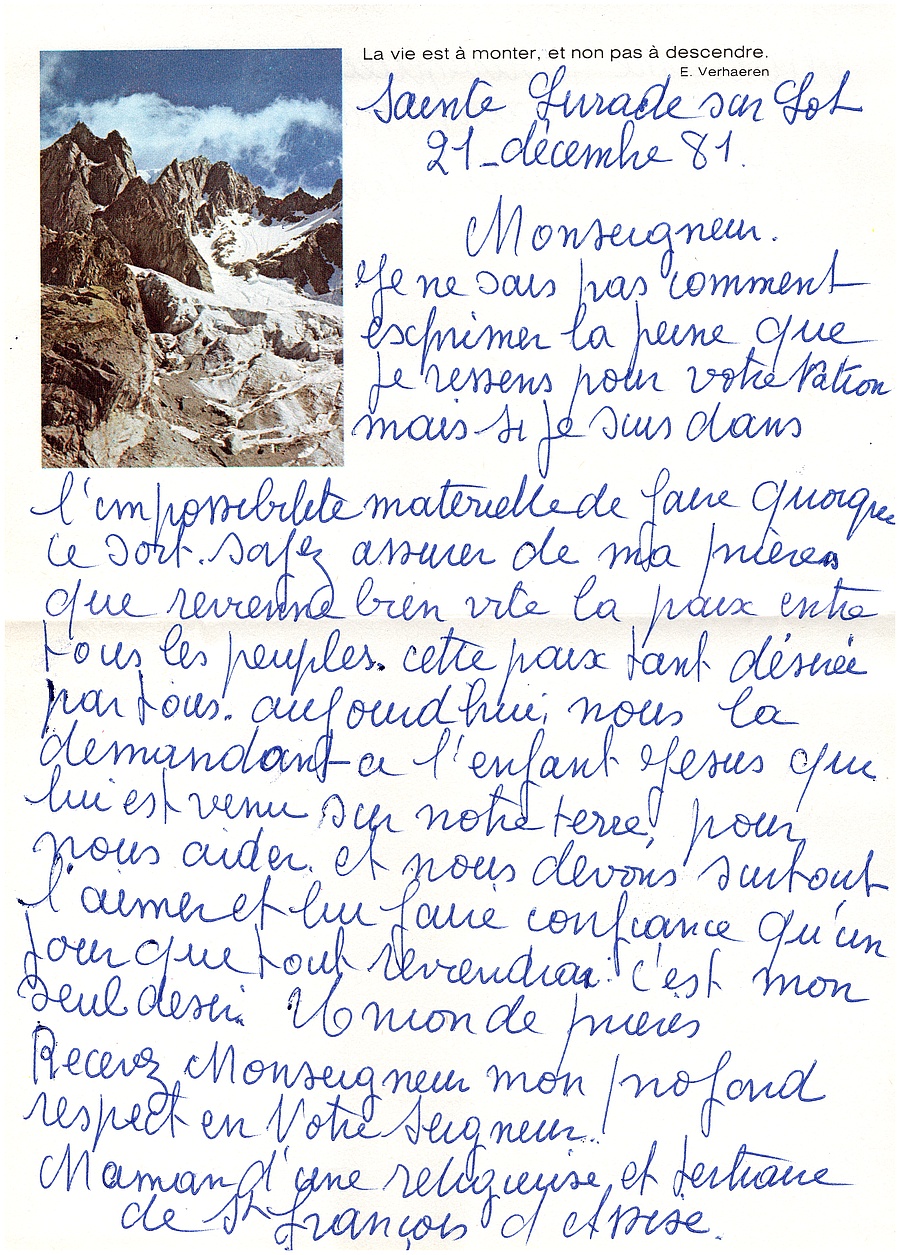 La vie est à monter, et non pas à descendre.
E. Verhaeren
Sainte Livrade sur Lot
21_décembre 81.
Monseigneur.
Je ne sais pas comment
exprimer la peine que
je ressens pour votre Nation
mais si je suis dans
l'impossibilete materielle de faire quoique
ce soit. soyez assurer de ma prières
que revienne bien vite la paix entre
tous les peuples. cette paix tant désirée
par tous. aujourd'hui, nous la
demandant a l'enfant Jesus qui
lui est venu sur notre terre, pour
nous aider. et nous devons surtout
l'aimer et lui faire confiance qu'un
jour que tout reviendrai. c'est mon
seul desir. Union de prieres
Recevez Monseigneur mon profond
respect en Votre Seigneur.
Maman d'une religieuse, et tertiaire
de St François d'Assise.